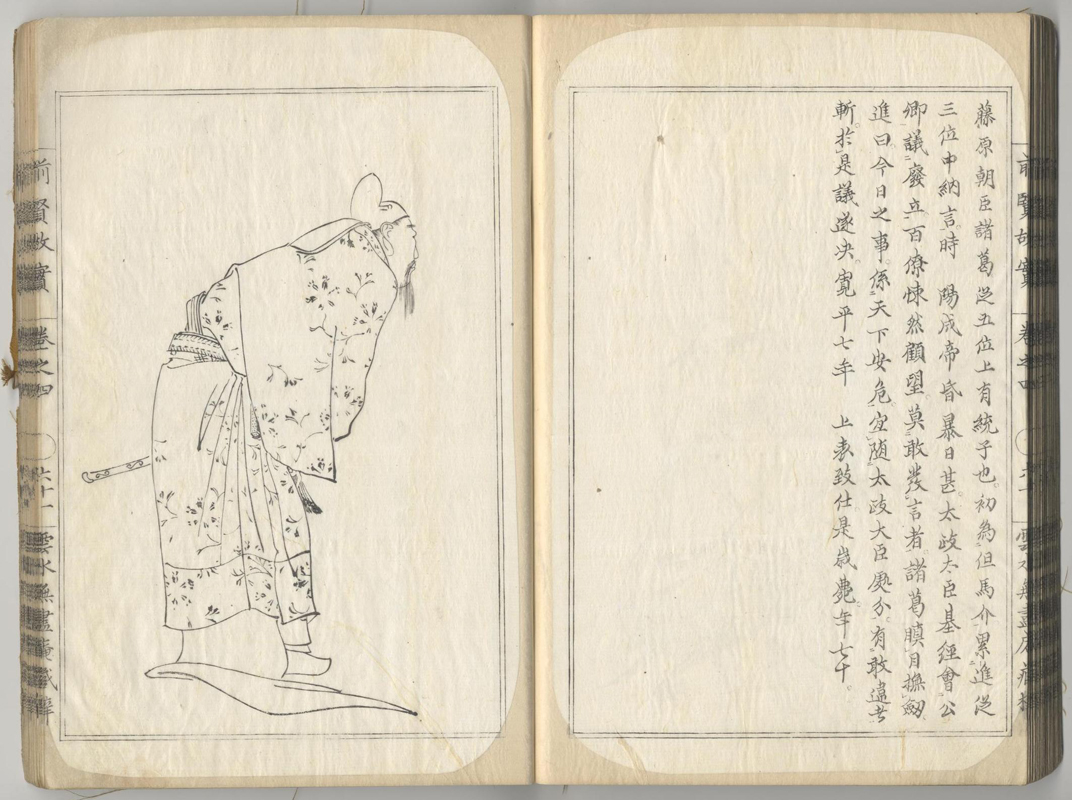 藤原朝臣諸葛從五位上有統子也。初為但馬介累進從
三位中納言。時　陽成帝昏暴日甚。太政大臣基經會公
卿議廢立百僚悚然顧望莫敢發言者。諸葛瞋目撫劔
進曰今日之事。係天下安危。宜随太政大臣處分。有敢違者
斬。於是議遂決寛平七年　上表致仕是歳薨。年七十。
前賢故實
卷之四
前賢故實
卷之四
六十一